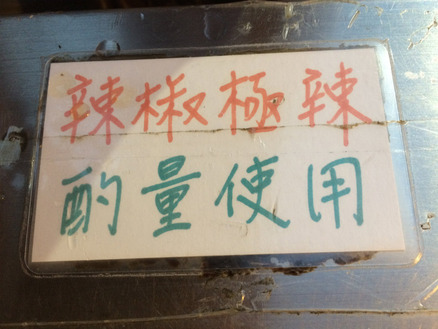 辣椒極辣
酌量使用